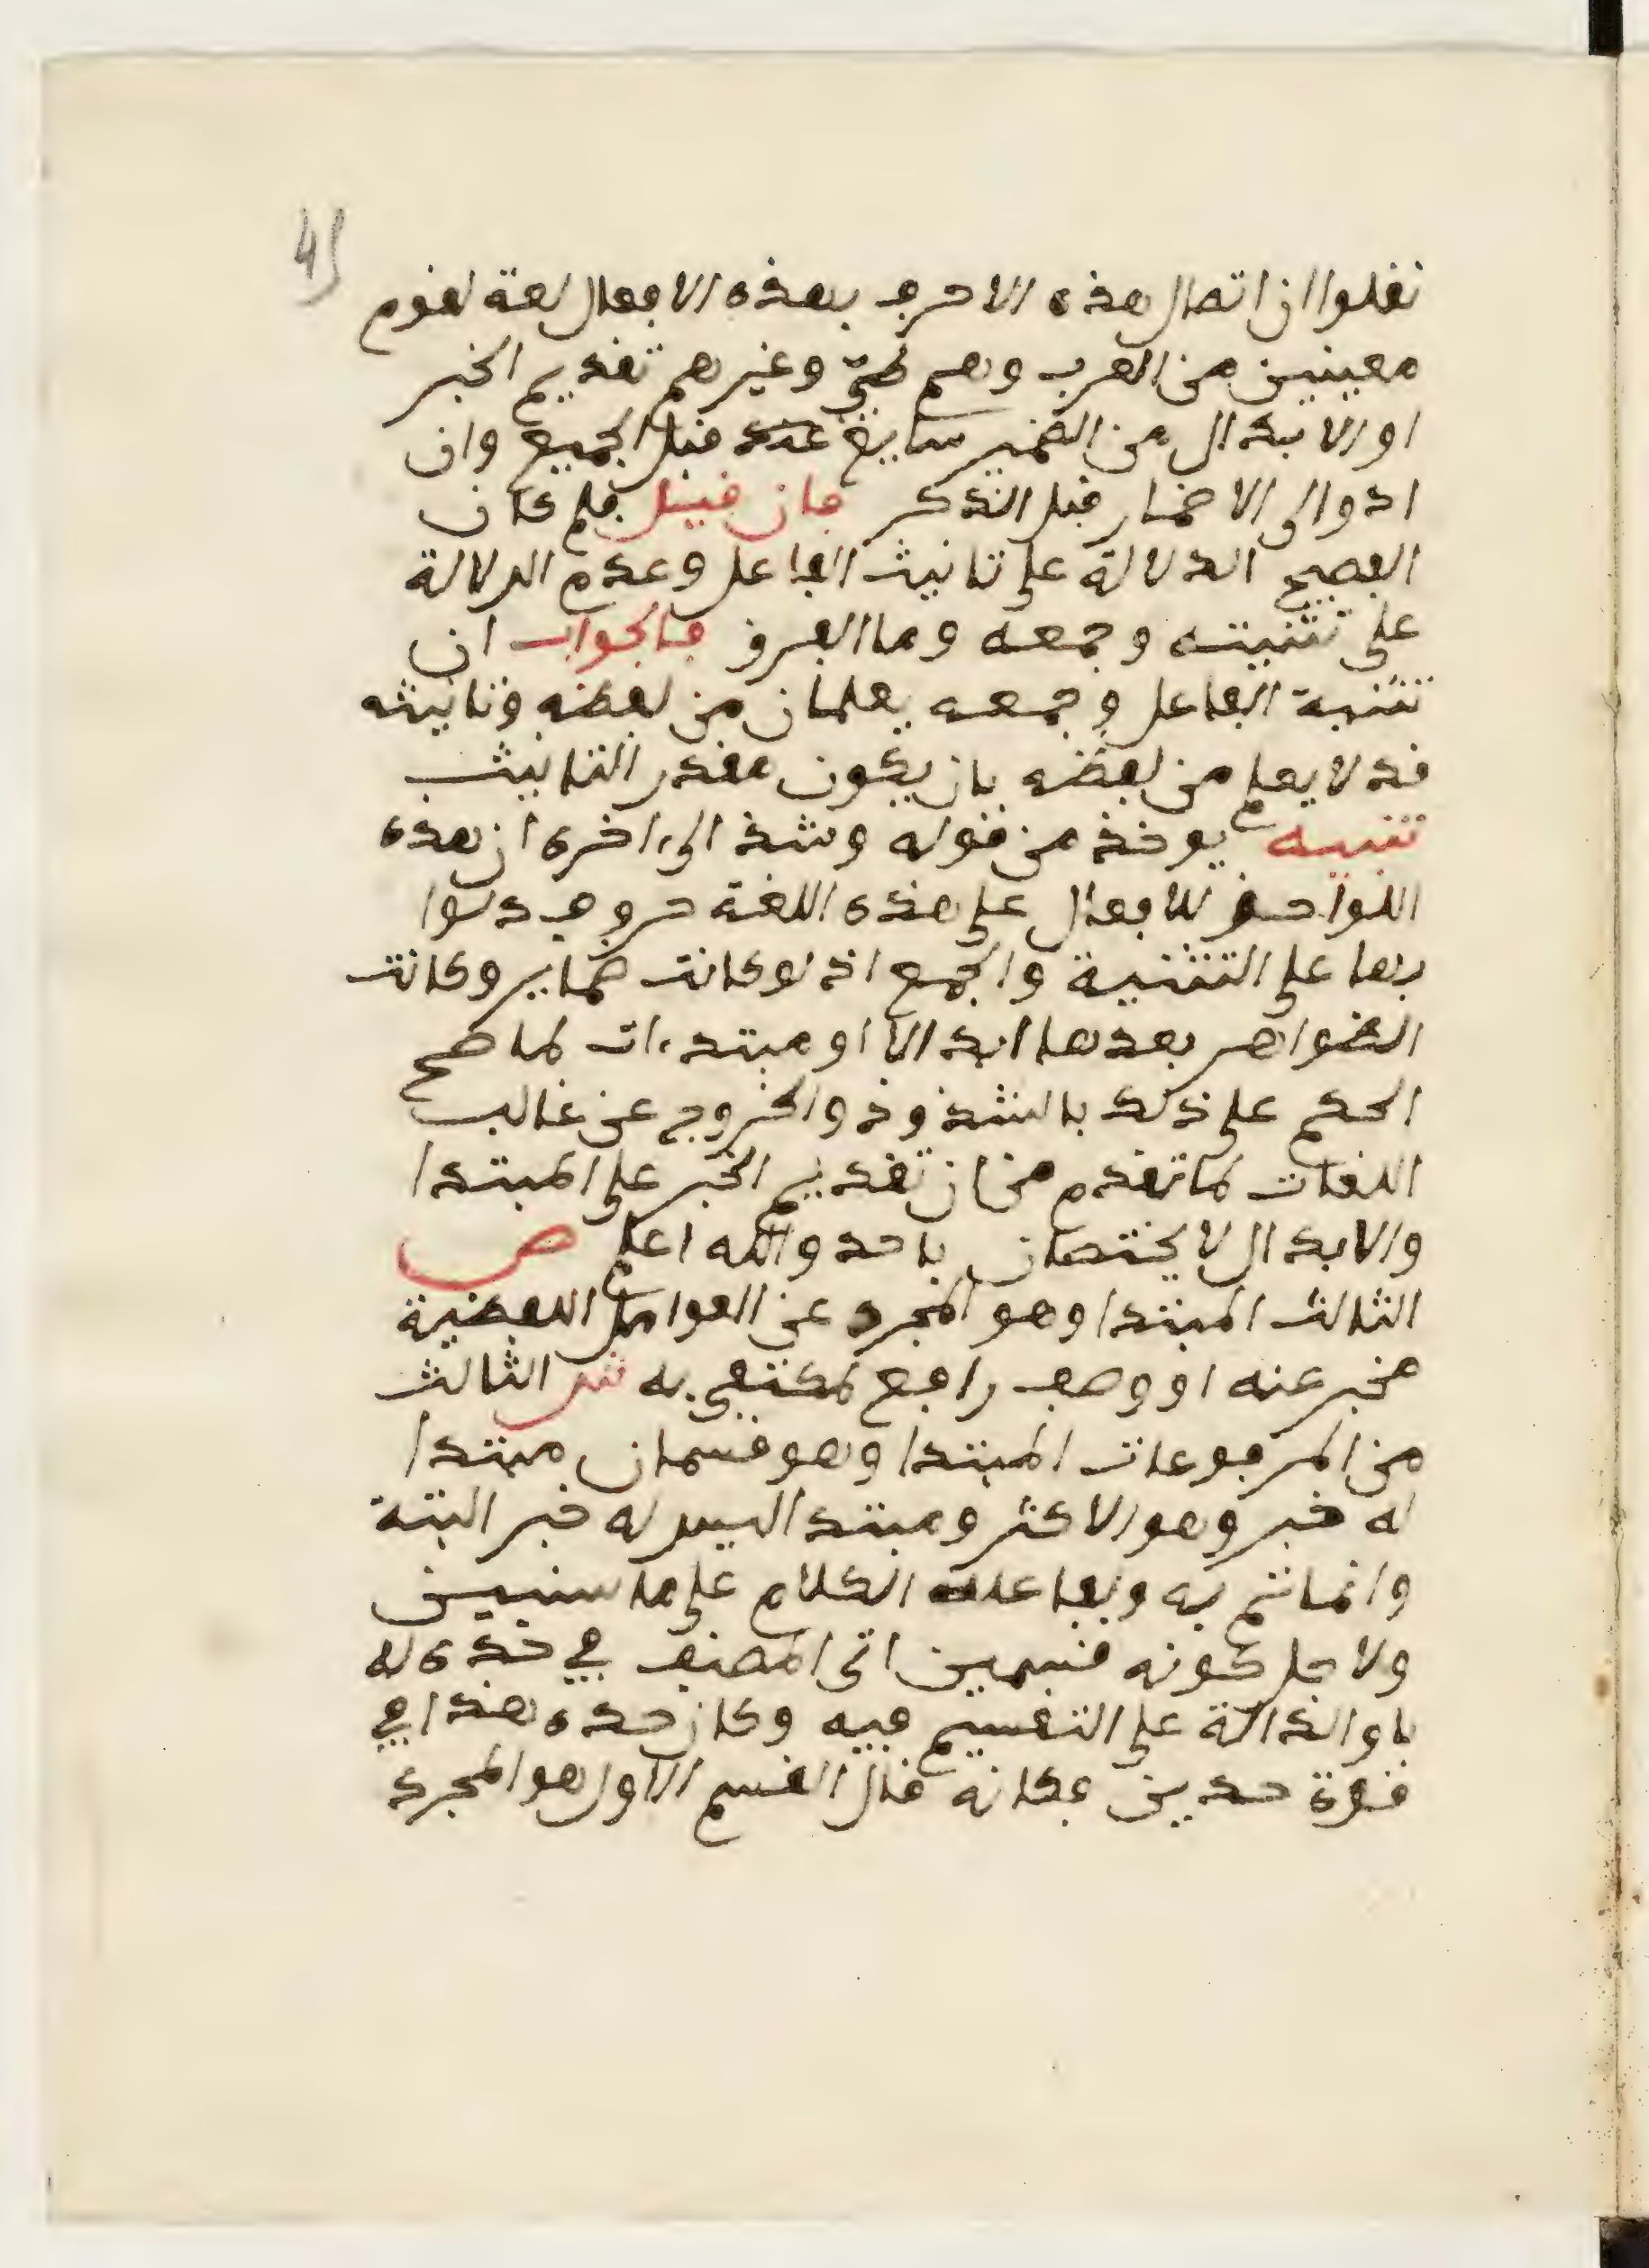 45
نقلوا ان اتصال هذه الاحرف بهذه الافعال لغة لقوم
معينين من العرب وهم طيّ وغيرهم تقديم الخبر
او الابدال من الضمير سايغ عند قبل الجميع وان
ادوا الى الاضمار قبل الذكر فان قيل فلم كان
الفصيح الدلالة على تانيث الفاعل وعدم الدلالة
على تثنيته وجمعه وما الفرق فالجواب ان
تثنية الفاعل وجمعه يعلمان من لفظه وتانيثه
قد لا يعلم من لفظه بان يكون مقدر التانيث
تنبيه يوخذ من قوله وشذ الى اخره ان هذه
اللواحق للافعال على هذه اللغة حروف دلوا
بها على التثنية والجمع اذ لو كانت ضماير وكانت
الظواهر بعدها ابدالا او مبتدءات لما صح
الحكم على ذلك بالشذوذ والخروج عن غالب
اللغات لما تقدم من ان تقديم الخبر على المبتدا
والابدال لا يختصان باحد والله اعلم ص
الثالث المبتدا وهو المجرد عن العوامل اللفظية
مخبر عنه او وصف رافع لمكتفى به ش الثالث
من المرفوعات المبتدا وهو قسمان مبتدا
له خبر وهو الاكثر ومبتدا ليس له خبر البتة
وانما تم به وبفاعله الكلام على ما سنبين
ولاجل كونه قسمين اتى المصنف في حده له
باو الدالة على التقسيم فيه وكان حده هذا في
قوة حدين فكانه قال القسم الاول هو المجرد